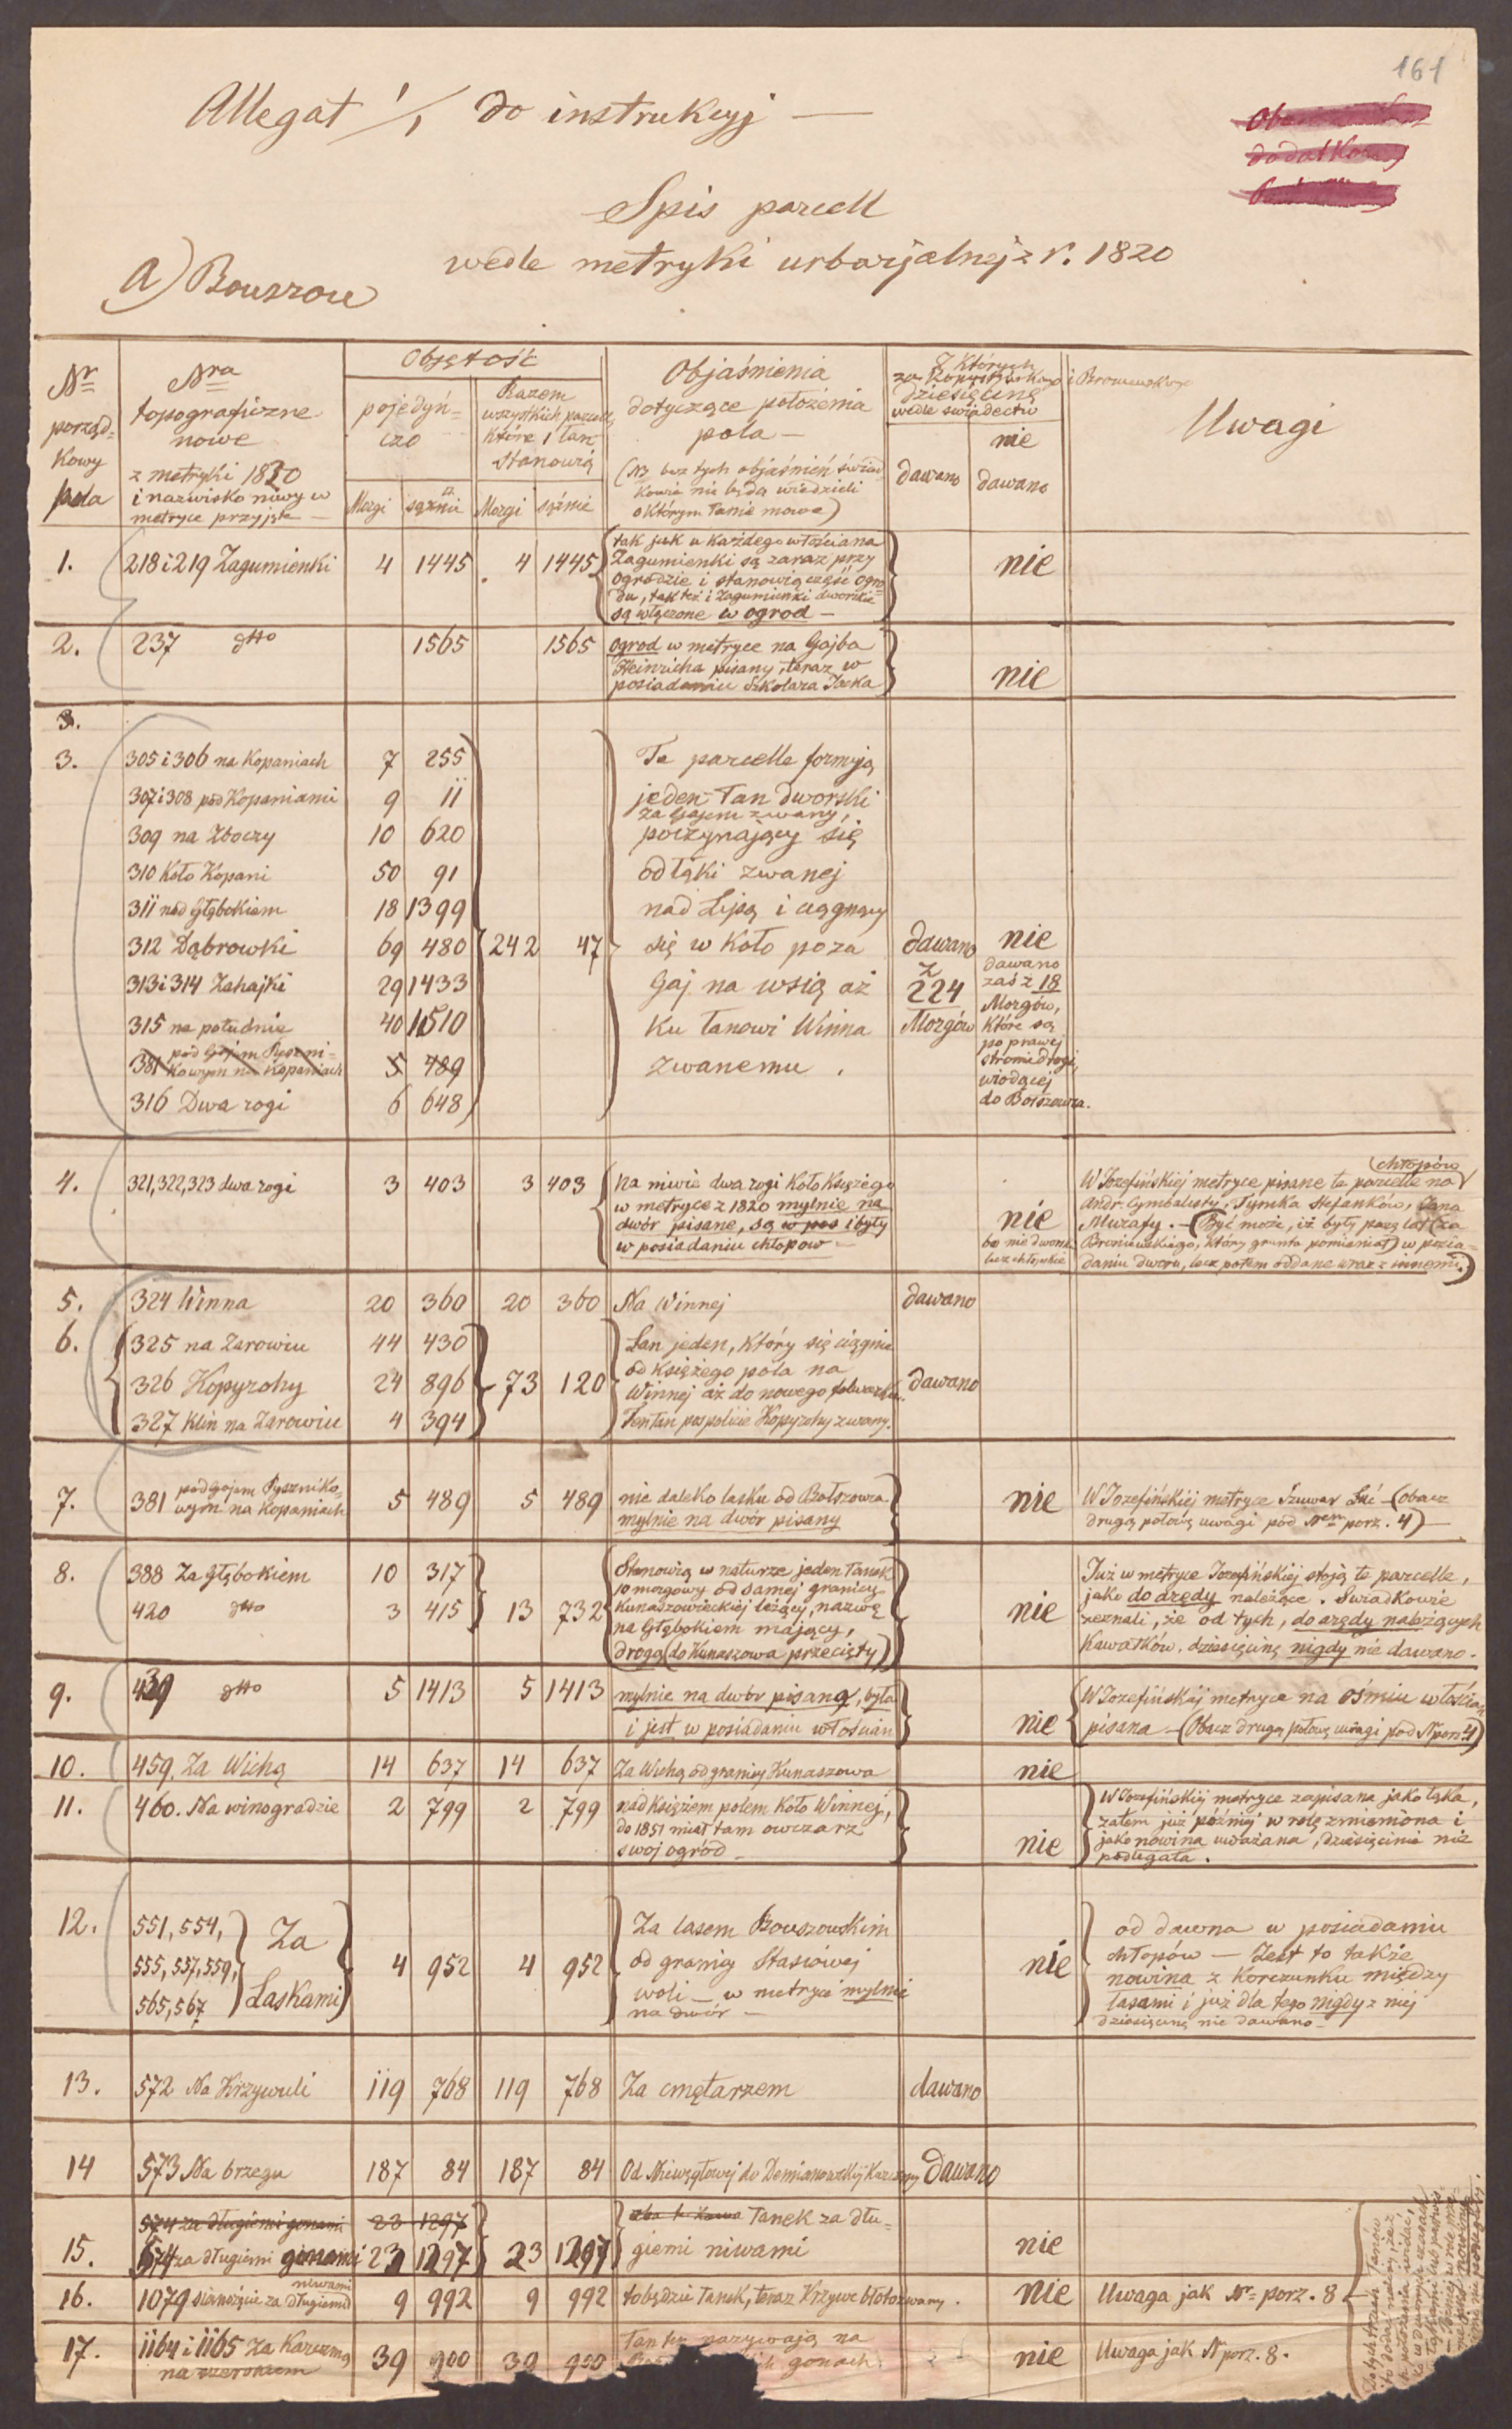 161
Allegat 1/1 do instrukcyj —
dodatkowy
Spis parcell
wedle metryki urbarjalnej z r. 1820
a) Bouszow
Nr porządkowy pola
Nra topograficzne nowe z metryki 1820 i nazwisko niwy w metryce przyjęte —
Objętość
pojedyńczo
Morgi sążnie
Razem wszystkich parcell, które 1 łan stanowią
Morgi sążnie
Objaśnienia dotyczące położenia pola —
(NB bez tych objaśnień świadkowie nie będą wiedzieli o którym łanie mowa)
Z których za Kopystyńskiego i Broniewskiego
dziesięcinę wedle świadectw
dawano
nie dawano
Uwagi
1. 218 i 219 Zagumienki 4 1445 4 1445
tak jak u każdego włościana
Zagumienki są zaraz przy
ogrodzie i stanowią część ogro=
du, tak też i Zagumienki dworskie
są włączone w ogrod —
nie
2. 237 dtto 1565 1565
ogrod w metryce na Gajba
Heinricha pisany, teraz w
posiadaniu Szkolarza Jacka
nie
3.
3. 305 i 306 na Kopaniach 7 255
307 i 308 pod Kopaniami 9 11
309 na Zboczy 10 620
310 Koło Kopani 50 91
311 nad Głębokiem 18 1399
312 Dąbrowki 69 480
313 i 314 Zahajki 29 1433
315 na południe 40 1510
381 pod Gajem Pyszni=
kowym na Kopaniach 5 489
316 Dwa rogi 6 648
242 47
Te parcelle formują
jeden łan dworski
za Gajem zwany,
poczynający się
od łąki zwanej
nad Lipą i ciągnący
się w Koło poza
Gaj na wsią aż
Ku łanowi Winna
zwanemu .
dawano
z
224
Morgów
nie
dawano
zaś z 18
Morgów,
które są
po prawej
stronie drogi,
wiodącej
do Bołszowca.
4. 321, 322, 323 dwa rogi 3 403 3 403
Na niwie dwa rogi Koło Księżego
w metryce z 1820 mylnie na
dwór pisane, są w pos i były
w posiadaniu chłopow —
nie
bo nie dworskie
lecz chłopskie
chłopów
W Jozefińskiej metryce pisane te parcelle na
Andr. Cymbalisty, Tymka Stefanków, Jana
Murafy. — (Być może, iż były parę lat (za
Broniewskiego, który grunta pomieniał) w posia=
daniu dworu, lecz potem oddane wraz z innemi.)
5. 324 Winna 20 360 20 360 Na Winnej dawano
6. 325 na Zarowiu 44 430
326 Kopyrohy 24 896
327 Klin na Zarowiu 4 394
73 120
Łan jeden, który się ciągnie
od księżego pola na
Winnej aż do nowego folwarku.
Ten łan pospolicie Kopyrohy zwany.
dawano
7. 381 pod Gajem Pyszniko=
wym na Kopaniach 5 489 5 489
nie daleko lasku od Bołszowca
mylnie na dwór pisany
nie
W Jozefińskiej metryce Szuwar Łuć — (obacz
drugą połowę uwagi pod Nrem porz. 4) —
8. 388 Za Głębokiem 10 317
420 dtto 3 415
13 732
Stanowią w naturze jeden łanek
10 morgowy od samej granicy
Kunaszowieckiej leżący, nazwę
na Głębokiem mający,
drogą (do Kunaszowa przecięty)
nie
Już w metryce Jozefińskiej stoją te parcelle,
jako do arędy należące. Swiadkowie
zeznali, że od tych, do arędy należących
Kawałków, dziesięcinę nigdy nie dawano.
9. 439 dtto 5 1413 5 1413
mylnie na dwór pisana, była
i jest w posiadaniu włościan
nie
W Jozefińskiej metryce na ośmiu włościan
pisana — (Obacz drugą połowę uwagi pod N porz 4)
10. 459. Za Wichą 14 637 14 637 Za Wichą od granicy Kunaszowa nie
11. 460. Na winogradzie 2 799 2 799
nad Księżem polem Koło Winnej,
do 1851 miał tam owczarz
swoj ogród —
nie
W Jozefińskiej metryce zapisana jako łąka,
zatem już później w rolę zmieniona i
jako nowina uważana, dziesięcinie nie
podlegała.
12. 551, 554,
555, 557, 559,
565, 567
Za
Laskami
4 952 4 952
Za lasem Bouszowskim
od granicy Stasiowej
woli — w metryce mylnie
na dwór —
nie
od dawna w posiadaniu
chłopów — Jest to także
nowina z Korczunku między
lasami i już dla tego nigdy z niej
dziesięcinę nie dawano —
13. 572 Na Krzywuli 119 768 119 768 Za cmętarzem dawano
14 573 Na brzegu 187 84 187 84 Od Niwęgłowej do Demianowskiej Karczmy dawano
574 za długiemi gonami 23 1297
15. 574 za długiemi gonami 23 1297 23 1297
łanek za dłu=
giemi niwami
nie
16. 1079 sianożęcie za długiemi niwami 9 992 9 992
to będzie łanek, teraz Krzywe błoto zwany.
nie
Uwaga jak Nr porz. 8
17. 1164 i 1165 za Karczmą
na szerokiem 39 900 39 900
Łan ten nazywają na
gonach
nie
Uwaga jak N porz. 8.
Do tych trzech łanów